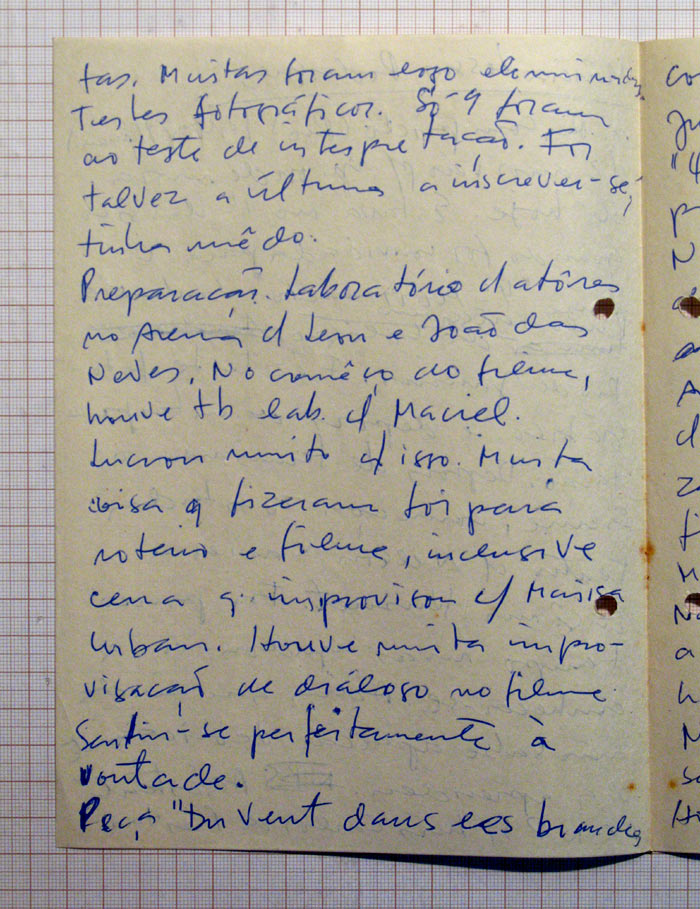 tas. Muitas foram logo eliminadas.
Testes fotográficos. Só 9 foram
ao teste de interpretação. Foi
talvez a última a inscrever-se,
tinha mêdo.
Preparação. Laboratório d atôres
no Arena c/ Leon e João das
Neves. No comêço do filme,
houve tb lab. c/ Maciel.
Lucrou muito c/ isso. Muita
coisa q fizeram foi para
roteiro e filme, inclusive
cena q. improvisou c/ Marisa
Urban. Houve muita impro-
visação de diálogo no filme.
Sentiu-se perfeitamente à
vontade.
Peça "Du vent dans les branches